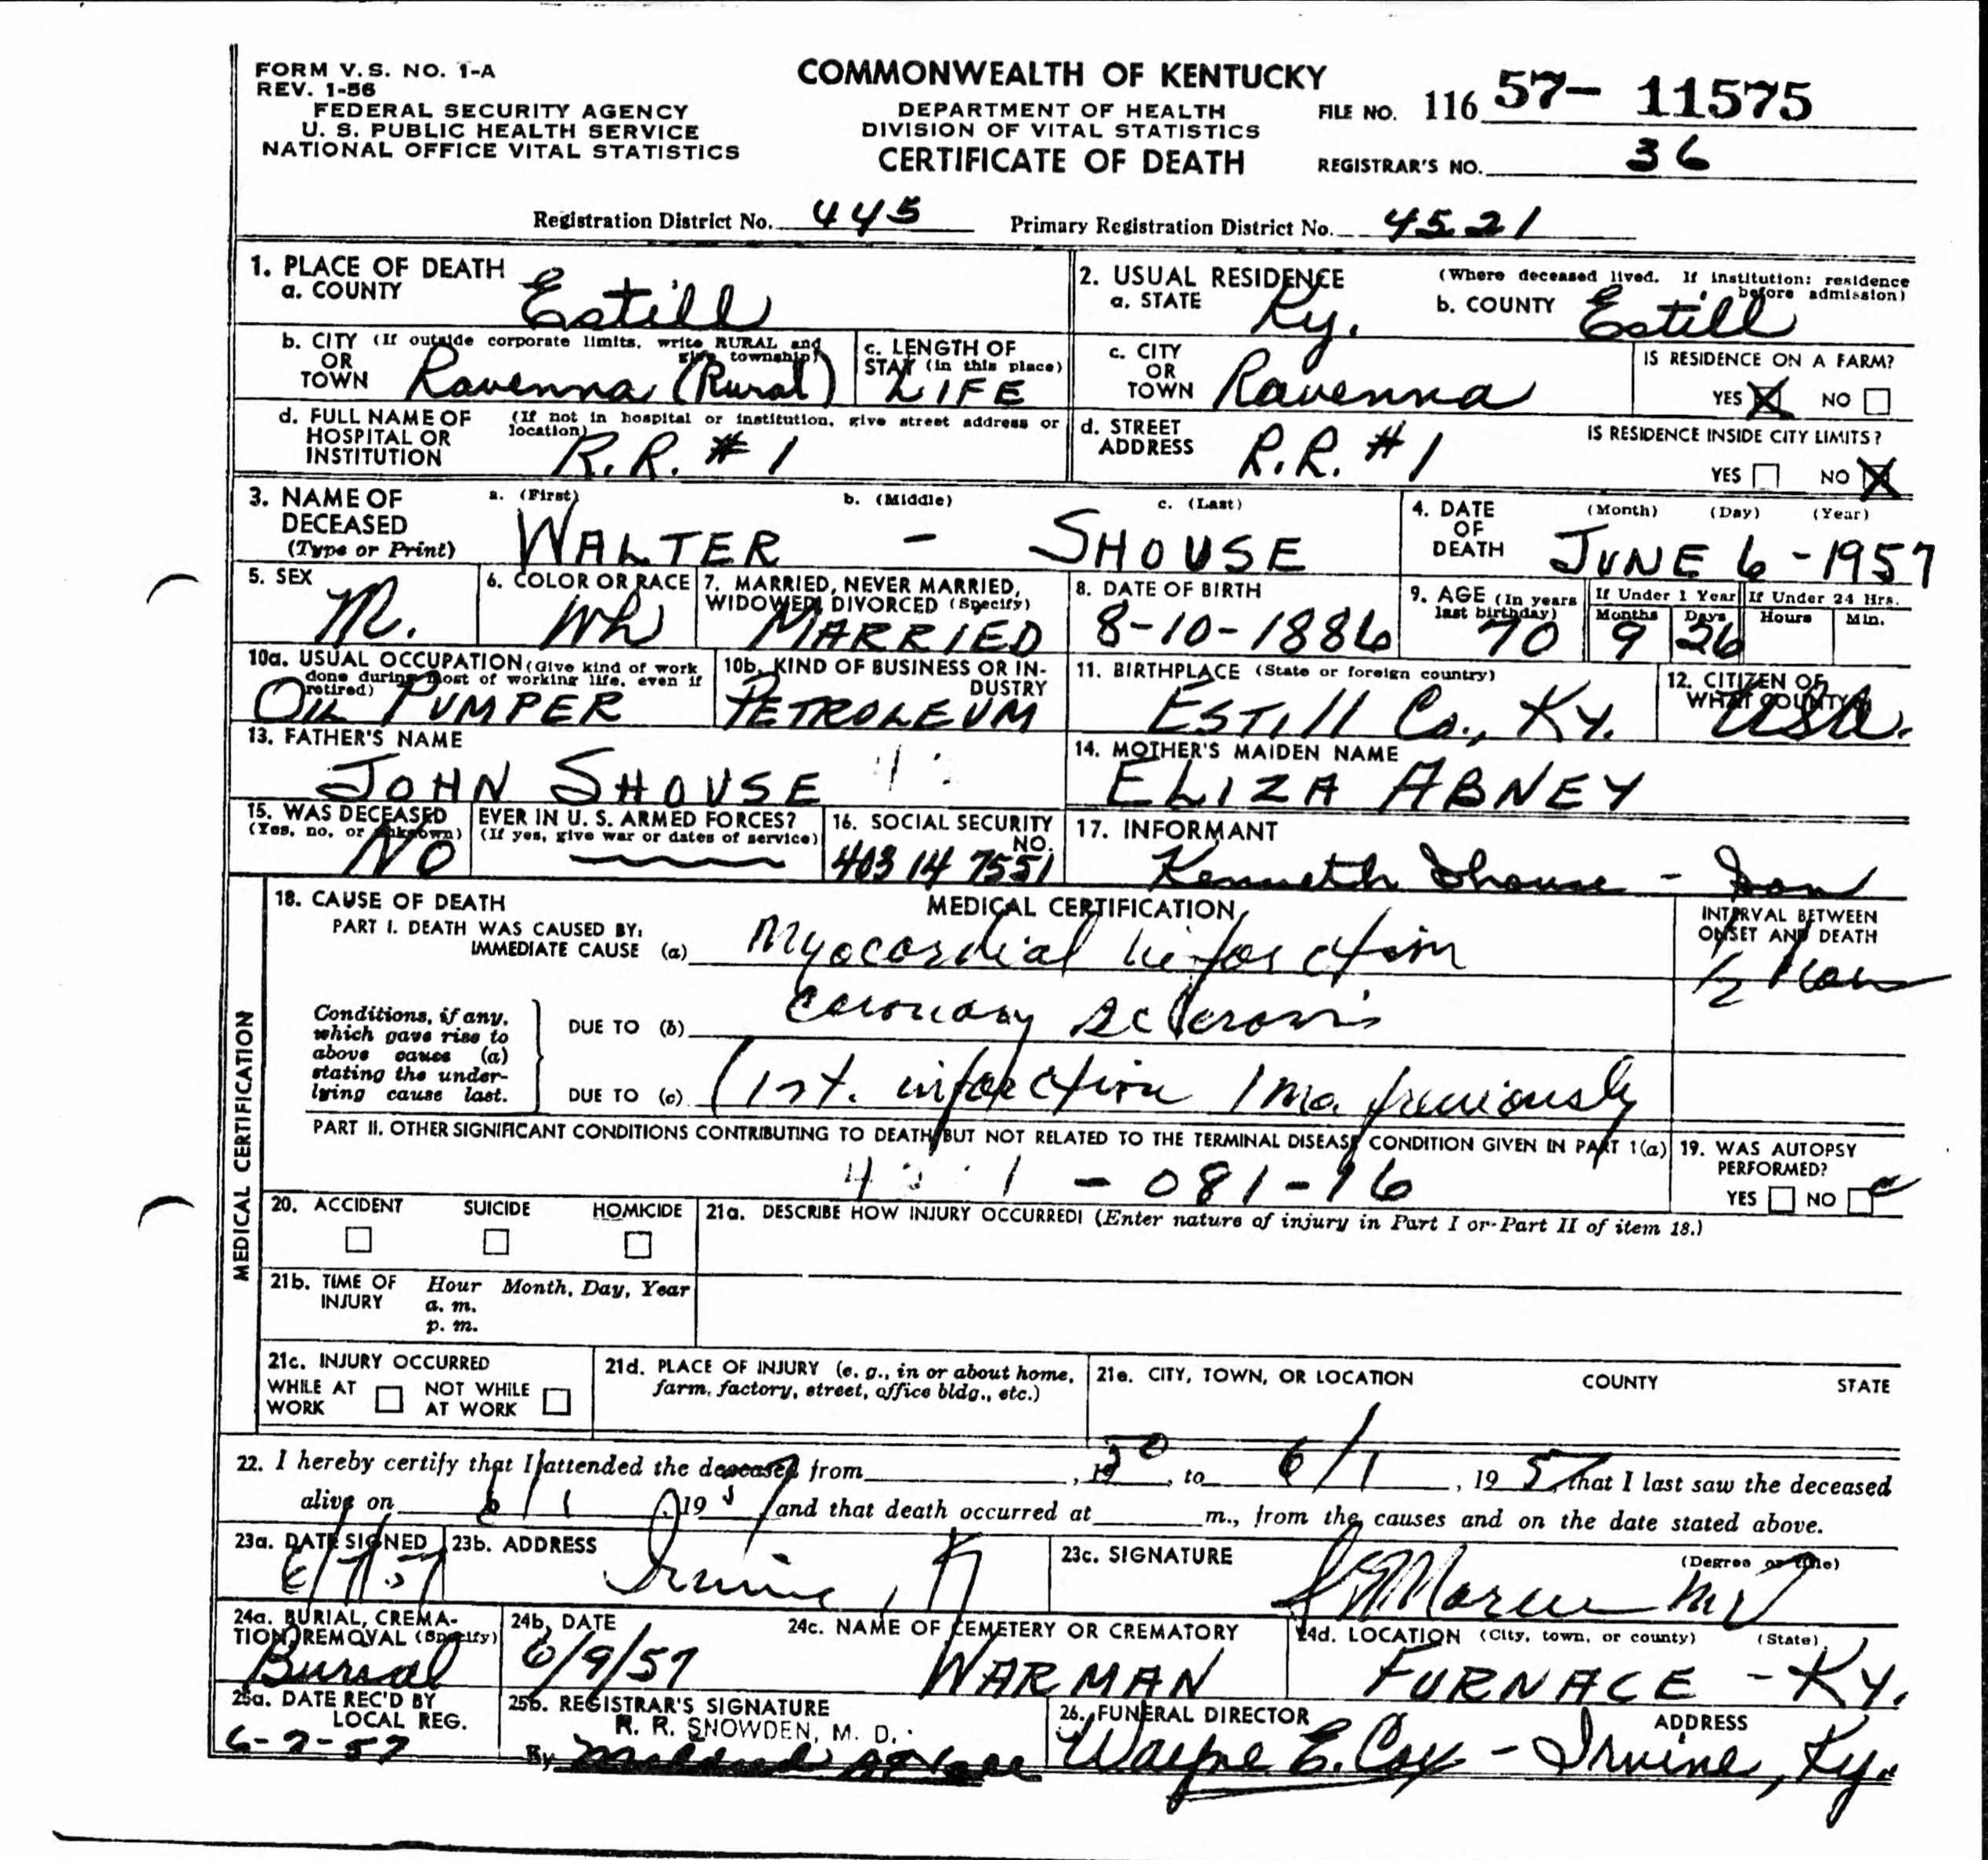 FORM V.S. NO. 1-A
REV. 1-56
FEDERAL SECURITY AGENCY
U. S. PUBLIC HEALTH SERVICE
NATIONAL OFFICE VITAL STATISTICS
COMMONWEALTH OF KENTUCKY
DEPARTMENT OF HEALTH
DIVISION OF VITAL STATISTICS
CERTIFICATE OF DEATH
FILE NO. 116 57- 11575
REGISTRAR'S NO. 36
Registration District No. 445 Primary Registration District No. 4521
1. PLACE OF DEATH
a. COUNTY Estill
2. USUAL RESIDENCE (Where deceased lived. If institution: residence before admission)
a. STATE Ky. b. COUNTY Estill
b. CITY (If outside corporate limits, write RURAL and give township)
OR TOWN Ravenna (Rural)
c. LENGTH OF STAY (in this place) LIFE
c. CITY OR TOWN Ravenna
IS RESIDENCE ON A FARM?
YES X NO
d. FULL NAME OF HOSPITAL OR INSTITUTION (If not in hospital or institution, give street address or location) R.R. #1
d. STREET ADDRESS R.R. #1
IS RESIDENCE INSIDE CITY LIMITS?
YES NO X
3. NAME OF DECEASED (Type or Print)
a. (First) b. (Middle) c. (Last)
WALTER - SHOUSE
4. DATE OF DEATH (Month) (Day) (Year)
JUNE 6 - 1957
5. SEX M.
6. COLOR OR RACE Wh
7. MARRIED, NEVER MARRIED, WIDOWED, DIVORCED (Specify) MARRIED
8. DATE OF BIRTH 8-10-1886
9. AGE (In years last birthday) 70
If Under 1 Year If Under 24 Hrs.
Months 9 Days 26 Hours Min.
10a. USUAL OCCUPATION (Give kind of work done during most of working life, even if retired) OIL PUMPER
10b. KIND OF BUSINESS OR INDUSTRY PETROLEUM
11. BIRTHPLACE (State or foreign country) ESTILL CO., KY.
12. CITIZEN OF WHAT COUNTRY? USA.
13. FATHER'S NAME JOHN SHOUSE
14. MOTHER'S MAIDEN NAME ELIZA ABNEY
15. WAS DECEASED EVER IN U. S. ARMED FORCES?
(Yes, no, or unknown) NO (If yes, give war or dates of service)
16. SOCIAL SECURITY NO. 403 14 7551
17. INFORMANT Kenneth Shouse - Son
MEDICAL CERTIFICATION
18. CAUSE OF DEATH
MEDICAL CERTIFICATION
INTERVAL BETWEEN ONSET AND DEATH
PART I. DEATH WAS CAUSED BY:
IMMEDIATE CAUSE (a) Myocardial infarction 1/2 Hour
Conditions, if any, which gave rise to above cause (a) stating the underlying cause last.
DUE TO (b) Coronary sclerosis
DUE TO (c) (1st. infarction 1 mo. previously
PART II. OTHER SIGNIFICANT CONDITIONS CONTRIBUTING TO DEATH BUT NOT RELATED TO THE TERMINAL DISEASE CONDITION GIVEN IN PART 1(a)
- 081-16
19. WAS AUTOPSY PERFORMED?
YES NO
20. ACCIDENT SUICIDE HOMICIDE
21a. DESCRIBE HOW INJURY OCCURRED! (Enter nature of injury in Part I or Part II of item 18.)
21b. TIME OF INJURY Hour Month, Day, Year
a. m.
p. m.
21c. INJURY OCCURRED
WHILE AT WORK NOT WHILE AT WORK
21d. PLACE OF INJURY (e. g., in or about home, farm, factory, street, office bldg., etc.)
21e. CITY, TOWN, OR LOCATION COUNTY STATE
22. I hereby certify that I attended the deceased from , 1950, to 6/1, 1957, that I last saw the deceased
alive on 6/1, 1957, and that death occurred at m., from the causes and on the date stated above.
23a. DATE SIGNED 6/7/57
23b. ADDRESS Irvine, K
23c. SIGNATURE (Degree or title) Marcum MD
24a. BURIAL, CREMATION, REMOVAL (Specify) Burial
24b. DATE 6/9/57
24c. NAME OF CEMETERY OR CREMATORY WARMAN
24d. LOCATION (City, town, or county) (State) FURNACE - KY.
25a. DATE REC'D BY LOCAL REG. 6-7-57
25b. REGISTRAR'S SIGNATURE
R. R. SNOWDEN, M. D.
By
26. FUNERAL DIRECTOR ADDRESS
Wayne E. Cox - Irvine, Ky.